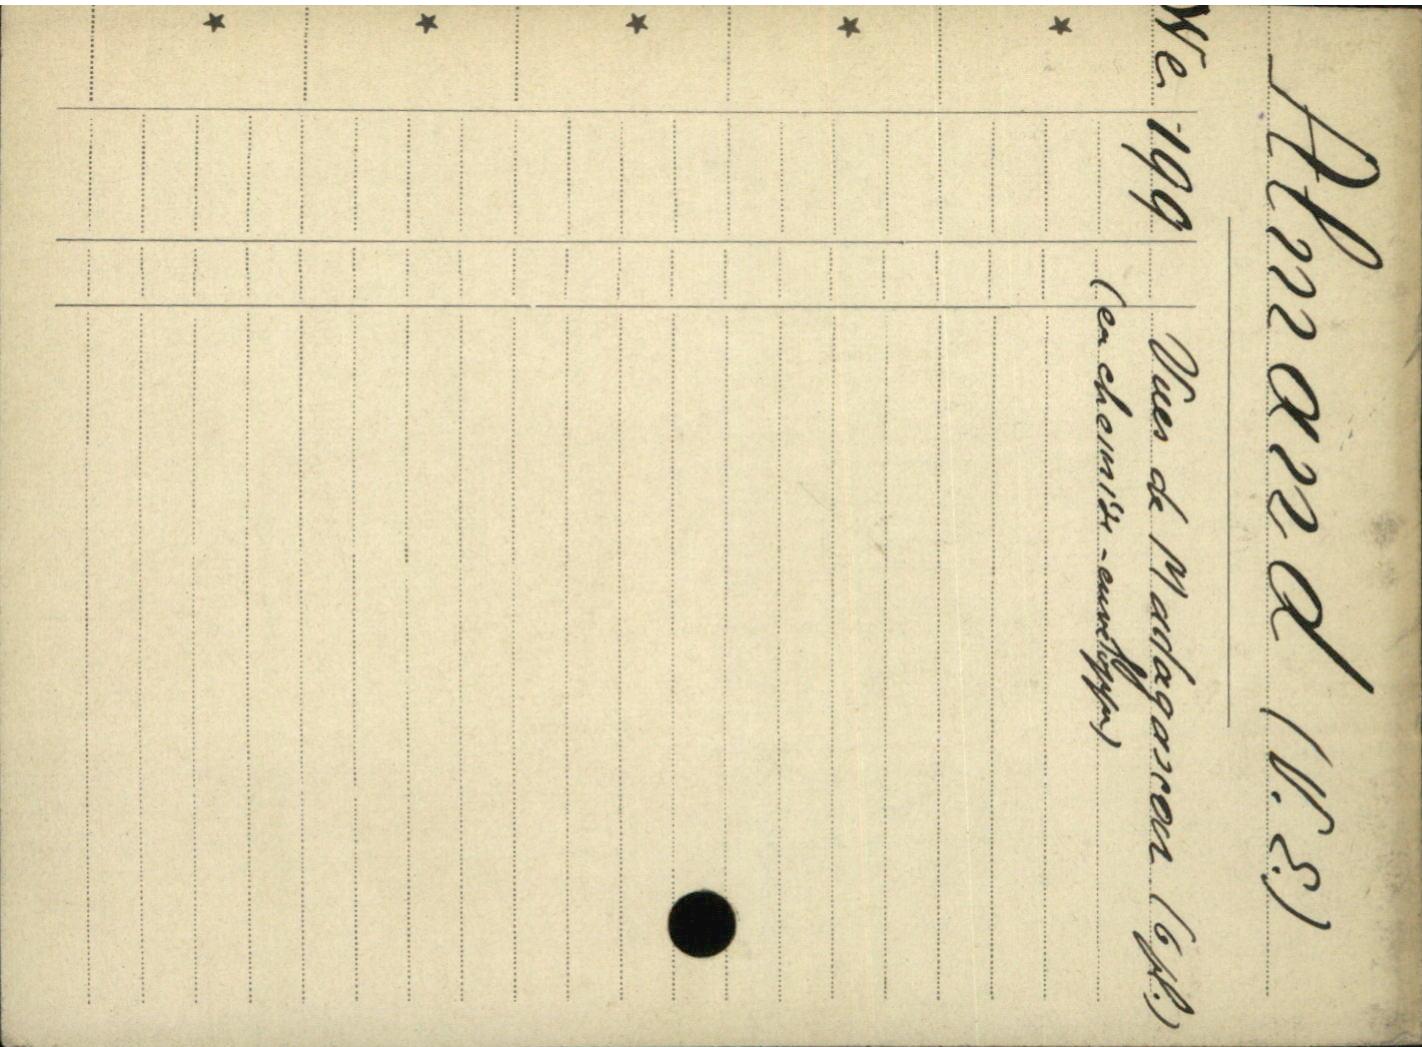 Almand (V. E.)
We 199 Vues de Madagascar (6 pl.)
(en chemise-enveloppe)